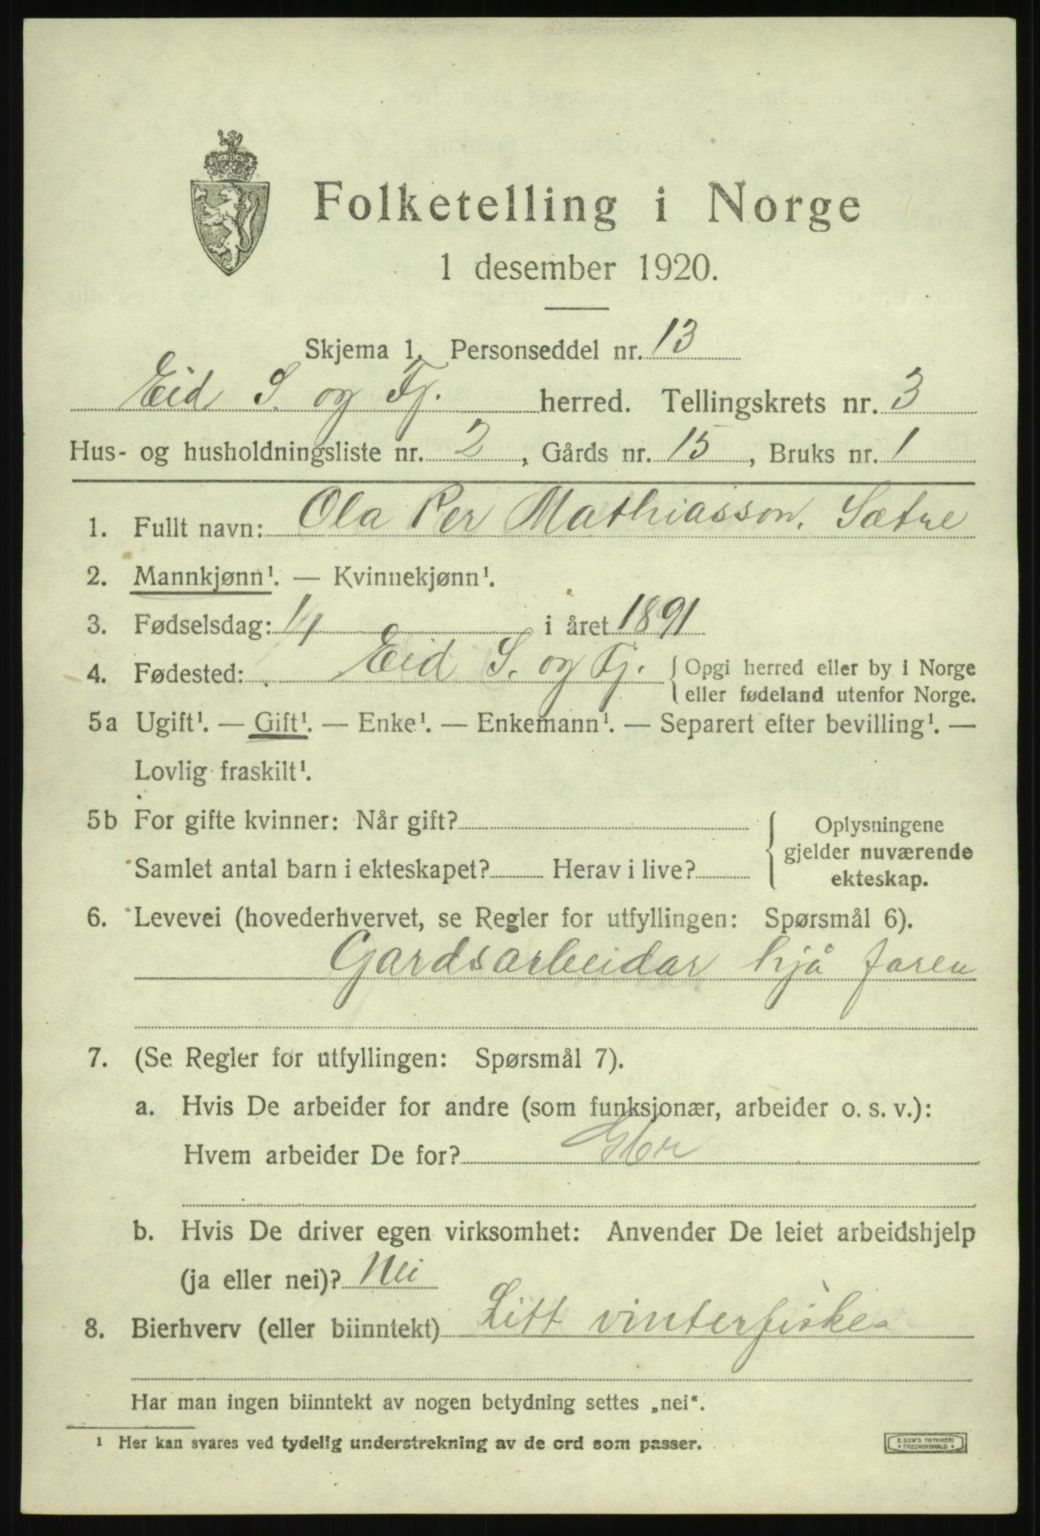 Folketelling i Norge
1 desember 1920.
Skjema 1. Personseddel nr. 13
Eid S. og Fj. herred. Tellingskrets nr. 3
Hus- og husholdningsliste nr. 2, Gårds nr. 15, Bruks nr. 1
1. Fullt navn: Ola Per Mathiasson. Sætre
2. Mannkjønn¹. — Kvinnekjønn¹.
3. Fødselsdag: i året 1891
4. Fødested: Eid S. og Fj. { Opgi herred eller by i Norge
eller fødeland utenfor Norge.
5a Ugift¹. — Gift¹. — Enke¹. — Enkemann¹. — Separert efter bevilling¹. —
Lovlig fraskilt¹.
5b For gifte kvinner: Når gift? { Oplysningene
gjelder nuværende
Samlet antal barn i ekteskapet? Herav i live?
ekteskap.
6. Levevei (hovederhvervet, se Regler for utfyllingen: Spørsmål 6).
Gardsarbeidar hjå faren
7. (Se Regler for utfyllingen: Spørsmål 7).
a. Hvis De arbeider for andre (som funksjonær, arbeider o. s. v.):
Hvem arbeider De for?
b. Hvis De driver egen virksomhet: Anvender De leiet arbeidshjelp
(ja eller nei)? Nei
8. Bierhverv (eller biinntekt) Litt vinterfiske
Har man ingen biinntekt av nogen betydning settes „nei“.
¹ Her kan svares ved tydelig understrekning av de ord som passer.